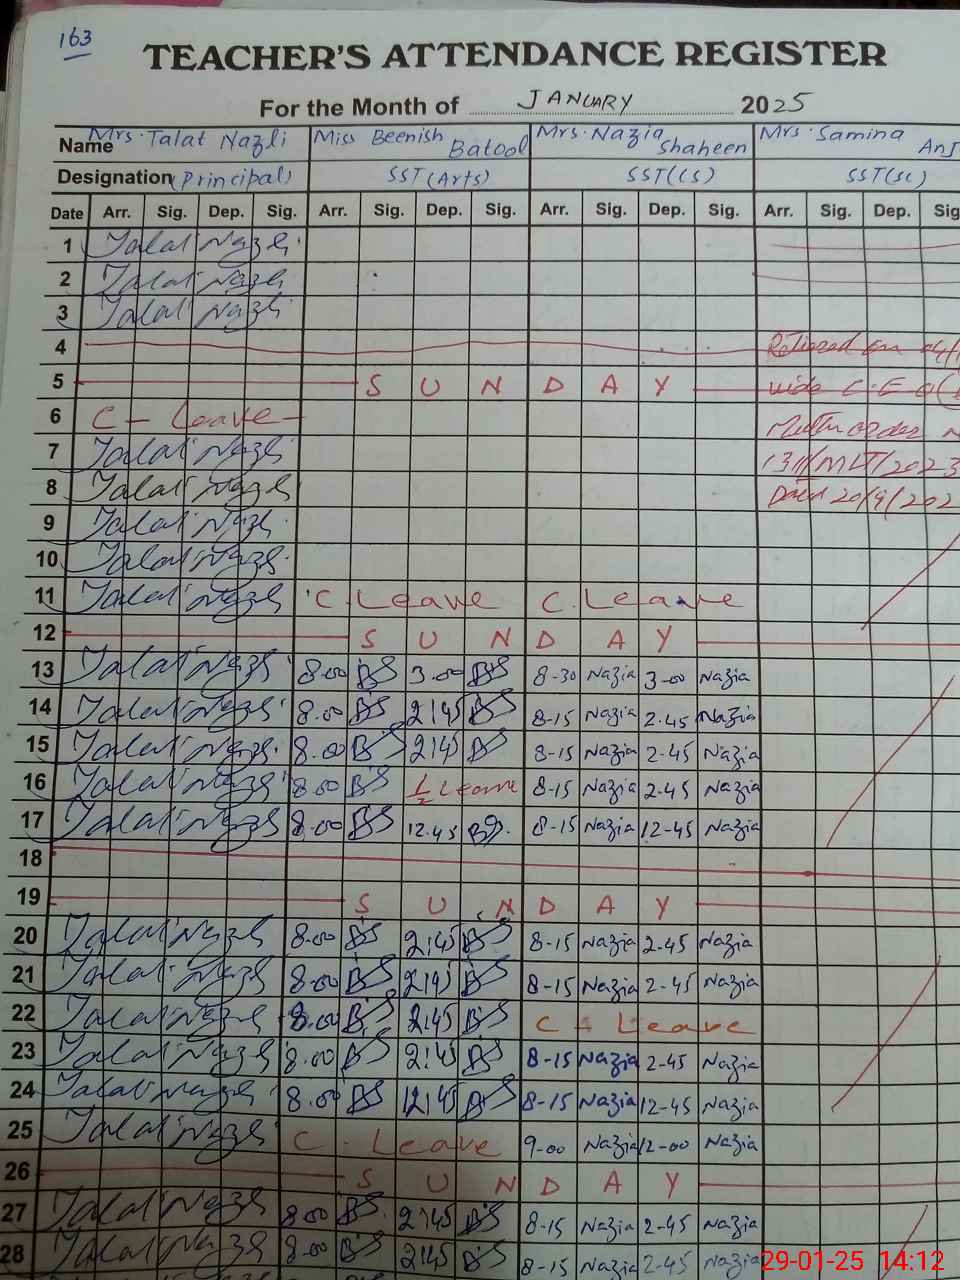 163
TEACHER'S ATTENDANCE REGISTER
For the Month of JANUARY 2025
Name Mrs. Talat Nazli Miss Beenish Batool Mrs. Nazia Shaheen Mrs. Samina
Designation (Principal) SST (Arts) SST (CS) SST (SC)
Date Arr. Sig. Dep. Sig. Arr. Sig. Dep. Sig. Arr. Sig. Dep. Sig. Arr. Sig. Dep. Sig
1 Talat Nazli
2 Talat Nazli
3 Talat Nazli
4 Retired on
5 S U N D A Y vide C.E.O
6 C - Leave - order
7 Talat Nazli
8 Talat Nazli Dated 20/9/202
9 Talat Nazli
10 Talat Nazli
11 Talat Nazli C. Leave C. Leave
12 S U N D A Y
13 Talat Nazli 8.00 BS 3.00 BS 8-30 Nazia 3-00 Nazia
14 Talat Nazli 8.00 BS 2:45 BS 8-15 Nazia 2.45 Nazia
15 Talat Nazli 8.00 BS 2:45 BS 8-15 Nazia 2-45 Nazia
16 Talat Nazli 8.00 BS 1/2 Leave 8-15 Nazia 2-45 Nazia
17 Talat Nazli 8.00 BS 12.45 BS. 8-15 Nazia 12-45 Nazia
18
19 S U N D A Y
20 Talat Nazli 8.00 BS 2:45 BS 8-15 Nazia 2-45 Nazia
21 Talat Nazli 8.00 BS 2:45 BS 8-15 Nazia 2-45 Nazia
22 Talat Nazli 8.00 BS 2:45 BS C - Leave
23 Talat Nazli 8.00 BS 2:45 BS 8-15 Nazia 2-45 Nazia
24 Talat Nazli 8.00 BS 12:45 BS 8-15 Nazia 12-45 Nazia
25 Talat Nazli C - Leave 9-00 Nazia 12-00 Nazia
26 S U N D A Y
27 Talat Nazli 8.00 BS 2:45 BS 8-15 Nazia 2-45 Nazia
28 Talat Nazli 8.00 BS 2:45 BS 8-15 Nazia 2-45 Nazia
29-01-25 14:12